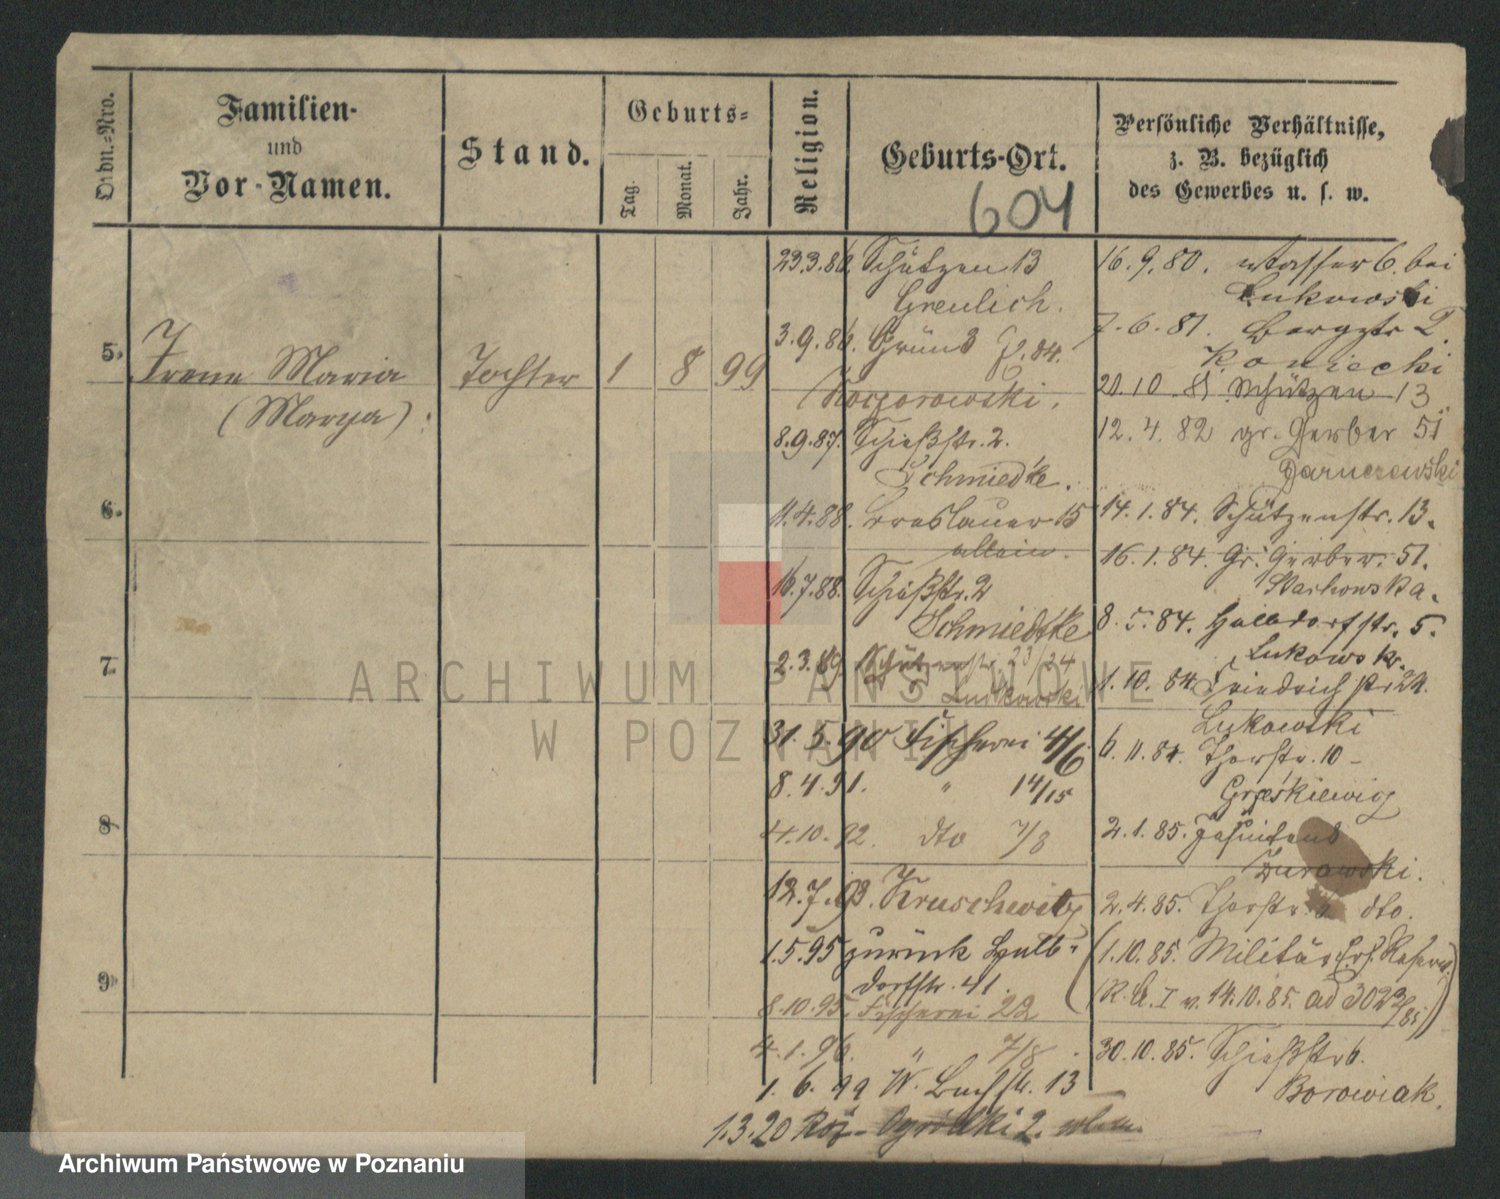 Ordn.-Nro.
Familien-
und
Vor-Namen.
Stand.
Geburts-
Tag.
Monat.
Jahr.
Religion.
Geburts-Ort.
604
Persönliche Verhältnisse,
z. B. bezüglich
des Gewerbes u. s. w.
5.
Irene Maria
(Marya)
Tochter
1
8
99
6.
7.
8
9
23.3.86. Schützen 13
Greulich.
3.9.86. Grün 3
8.9.87. Schießstr. 2.
Schmiedke.
11.4.88. Breslauer 15
allein.
16.7.88. Schießstr. 2
Schmiedtke
2.3.89 Schützenstr. 23/24
Lukowski
31.5.90 Fischerei 4/6
8.4.91. " 14/15
4.10.92. dto 7/8
12.7.93. Kruschwitz
1.5.95 zurück Halb-
dorfstr. 41.
8.10.95. Fischerei 22
4.1.96. " 7/8
1.6.99 W. Buchstr. 13
1.3.20 Ogrodki 2.
16.9.80. Wasser 6. bei
Lukowski
7.6.81.
Koniecki
20.10.81 Schützen 13
12.4.82 gr. Gerber 51
14.1.84. Schützenstr. 13.
16.1.84. Gr. Gerber. 51.
Stachowska.
8.5.84. Halbdorfstr. 5.
Lukowsk.
1.10.84. Friedrichstr. 24.
Lukowski
6.11.84. Thorstr. 10 -
Grzeskiewicz
2.1.85.
Zurawski.
2.4.85. Thorstr. dto.
(1.10.85. Militär Ers. Reserve.
R. A. I v. 14.10.85. ad 302
30.10.85. Schießstr 6.
Borowiak.
ARCHIWUM PAŃSTWOWE
W POZNANIU
Archiwum Państwowe w Poznaniu